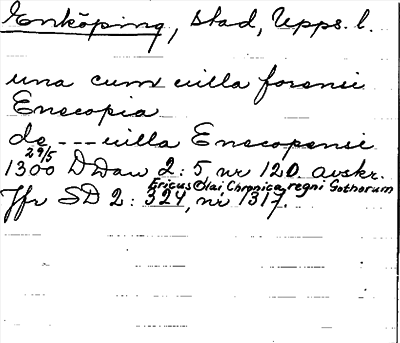 Enköping, stad, Upps. l.
una cum villa forensi
Enecopia
de --- villa Enecopensi
29/5
1300 DDaw 2: 5 nr 120. avskr.
Ericus Olai, Chronica regni Gothorum
Jfr SD 2: 324, nr 1317.